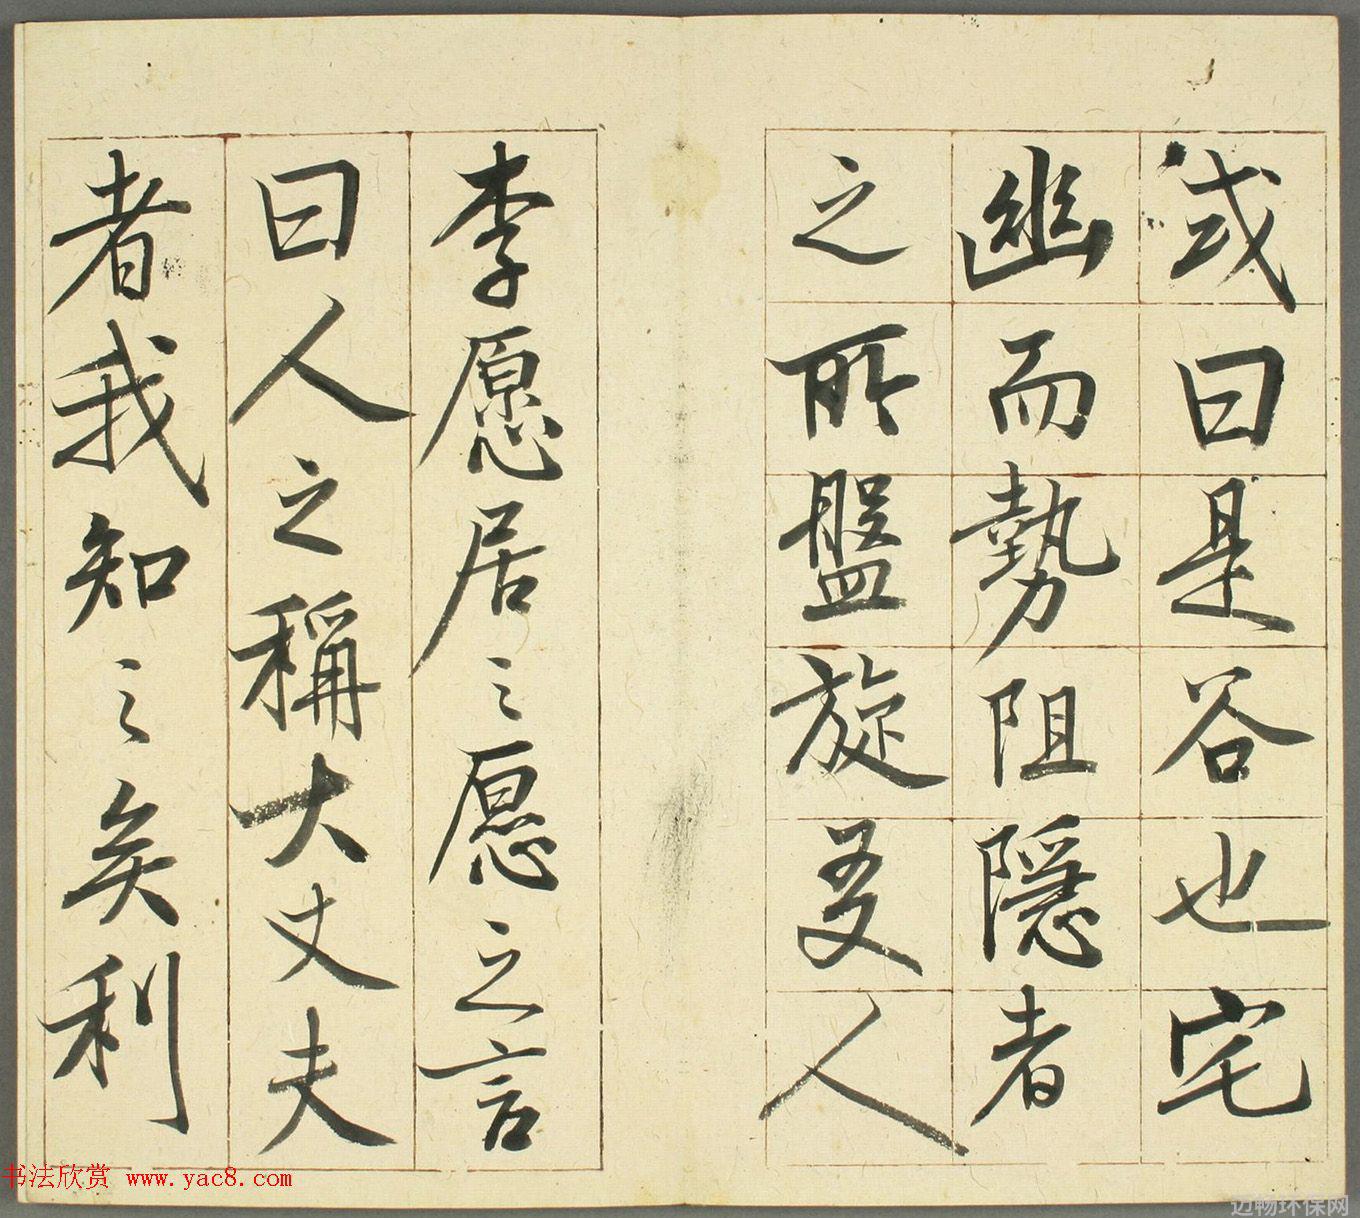 或曰是谷也宅
幽而勢阻隱者
之所盤旋友人
李愿居之愿之言
曰人之稱大丈夫
者我知之矣利
书法欣赏 www.yac8.com
迈畅环保网